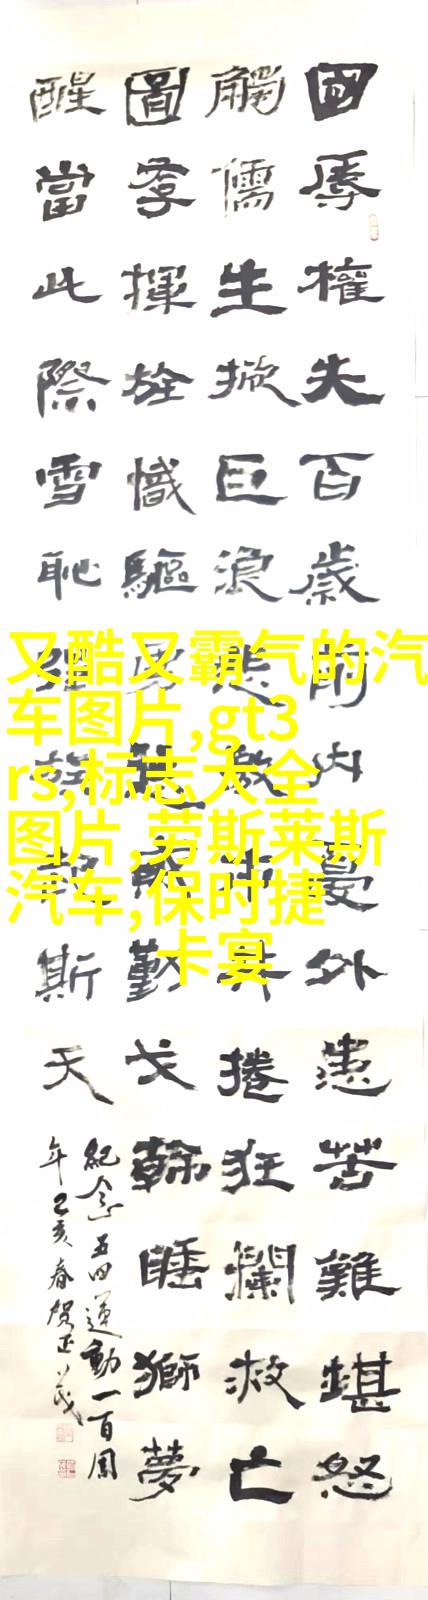 國辱權失百歲前內憂外患苦難堪怒
觸儒生掀巨浪悲激市井捲狂瀾救亡
圖存揮旌幟驅勤戈睡獅夢
醒當此際雪恥族斯天
紀念五四運動一百周
年己亥春賀正茂
又酷又霸气的汽
车图片,gt3
rs,标志大全
图片,劳斯莱斯
汽车,保时捷
卡宴